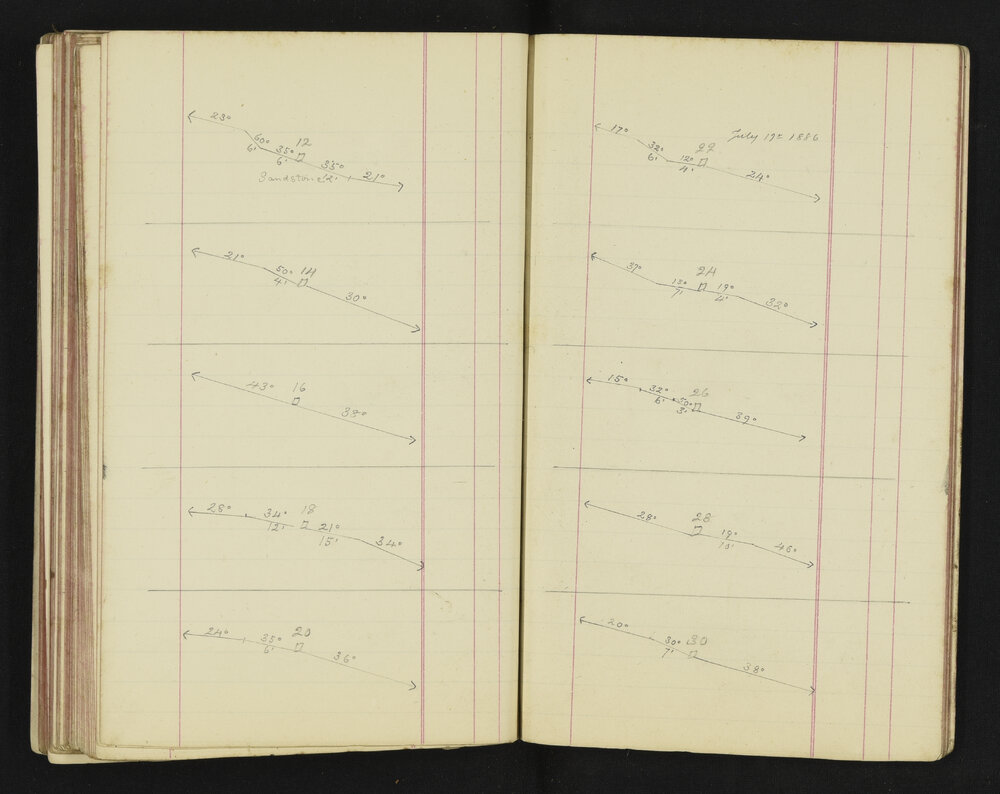 23°
60° 12
6' 35° 35°
6' 21°
Sandstone 12'
21° 50° 14
4' 30°
43° 16
38°
28° 34° 18 21°
12' 15' 34°
24° 35° 20
6' 36°
July 19th 1886
17° 32° 22
6' 12° 24°
4'
37° 24
13° 19° 32°
7' 4'
15° 32° 26
6' 50° 39°
3'
28° 28
19° 46°
20° 30° 30
7' 38°